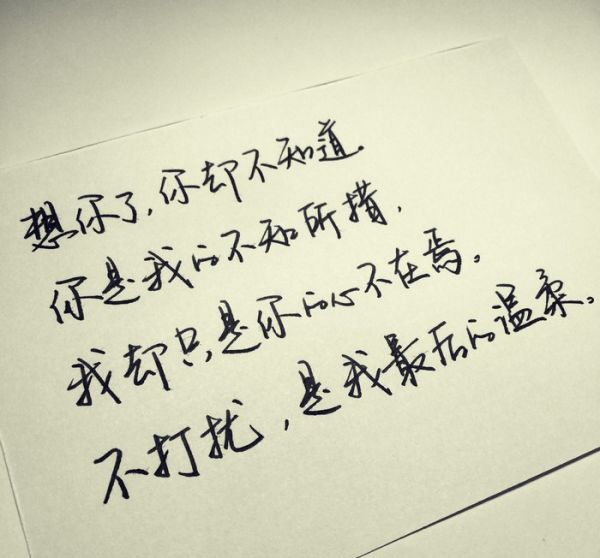 想你了，你却不知道.
你是我的不知所措，
我却只是你的心不在焉。
不打扰，是我最后的温柔。